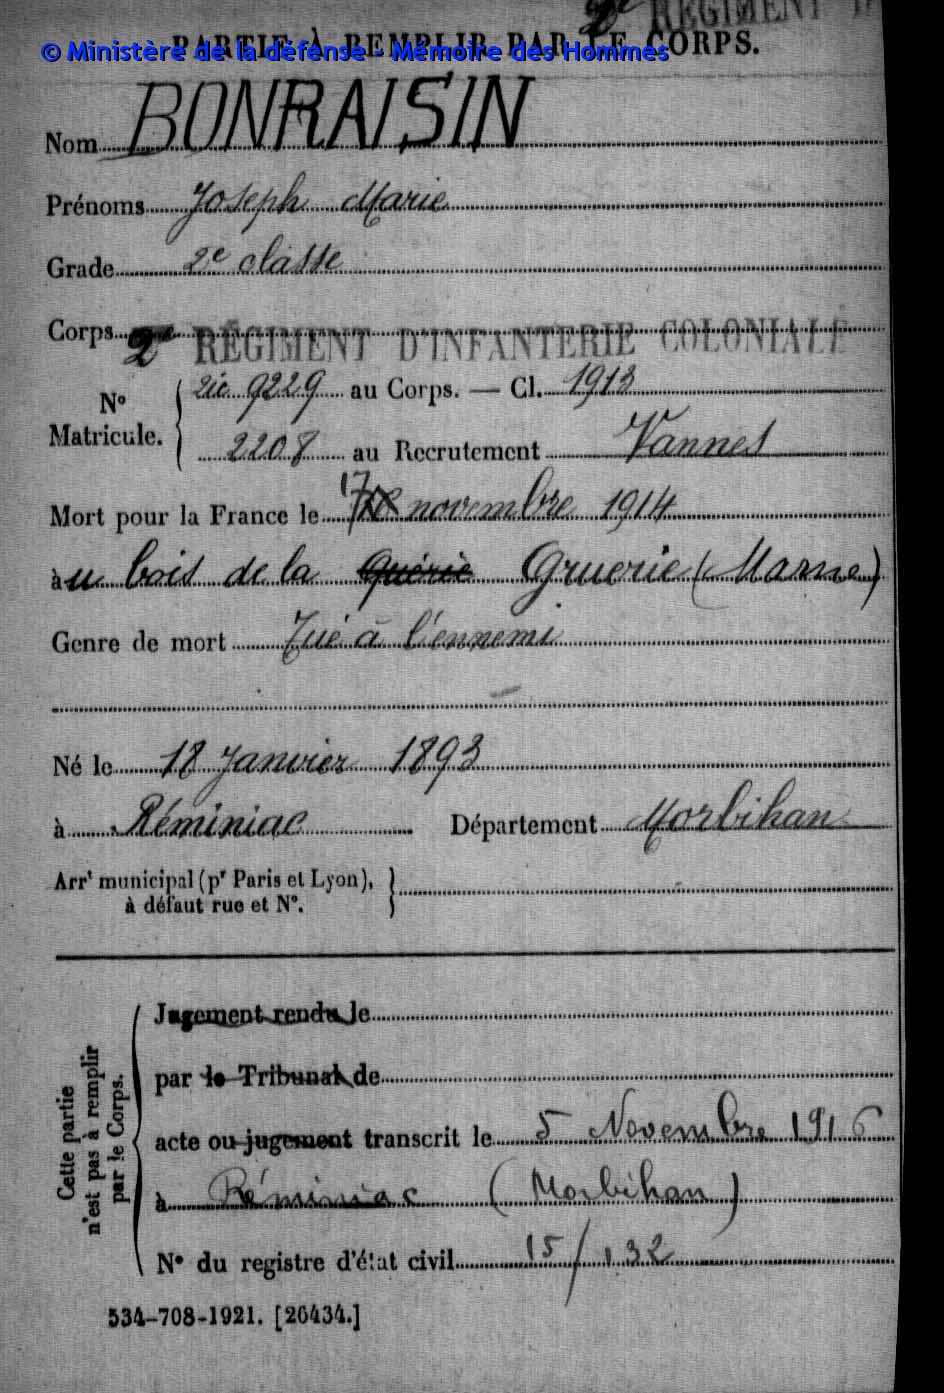 2e RÉGIMENT
PARTIE À REMPLIR PAR LE CORPS.
© Ministère de la défense - Mémoire des Hommes
Nom BONRAISIN
Prénoms Joseph Marie
Grade 2e classe
Corps 2e RÉGIMENT D'INFANTERIE COLONIALE
No Matricule. { 2ic 9229 au Corps. — Cl. 1913
2208 au Recrutement Vannes
Mort pour la France le 17 novembre 1914
àu bois de la Guérie Gruerie (Marne)
Genre de mort Tué à l'ennemi
Né le 18 Janvier 1893
à Réminiac Département Morbihan
Arrt municipal (pr Paris et Lyon),
à défaut rue et No.
Cette partie
n'est pas à remplir
par le Corps.
Jugement rendu le
par le Tribunal de
acte ou jugement transcrit le 5 Novembre 1916
à Réminiac (Morbihan)
No du registre d'état civil 15/132
534-708-1921. [26434.]